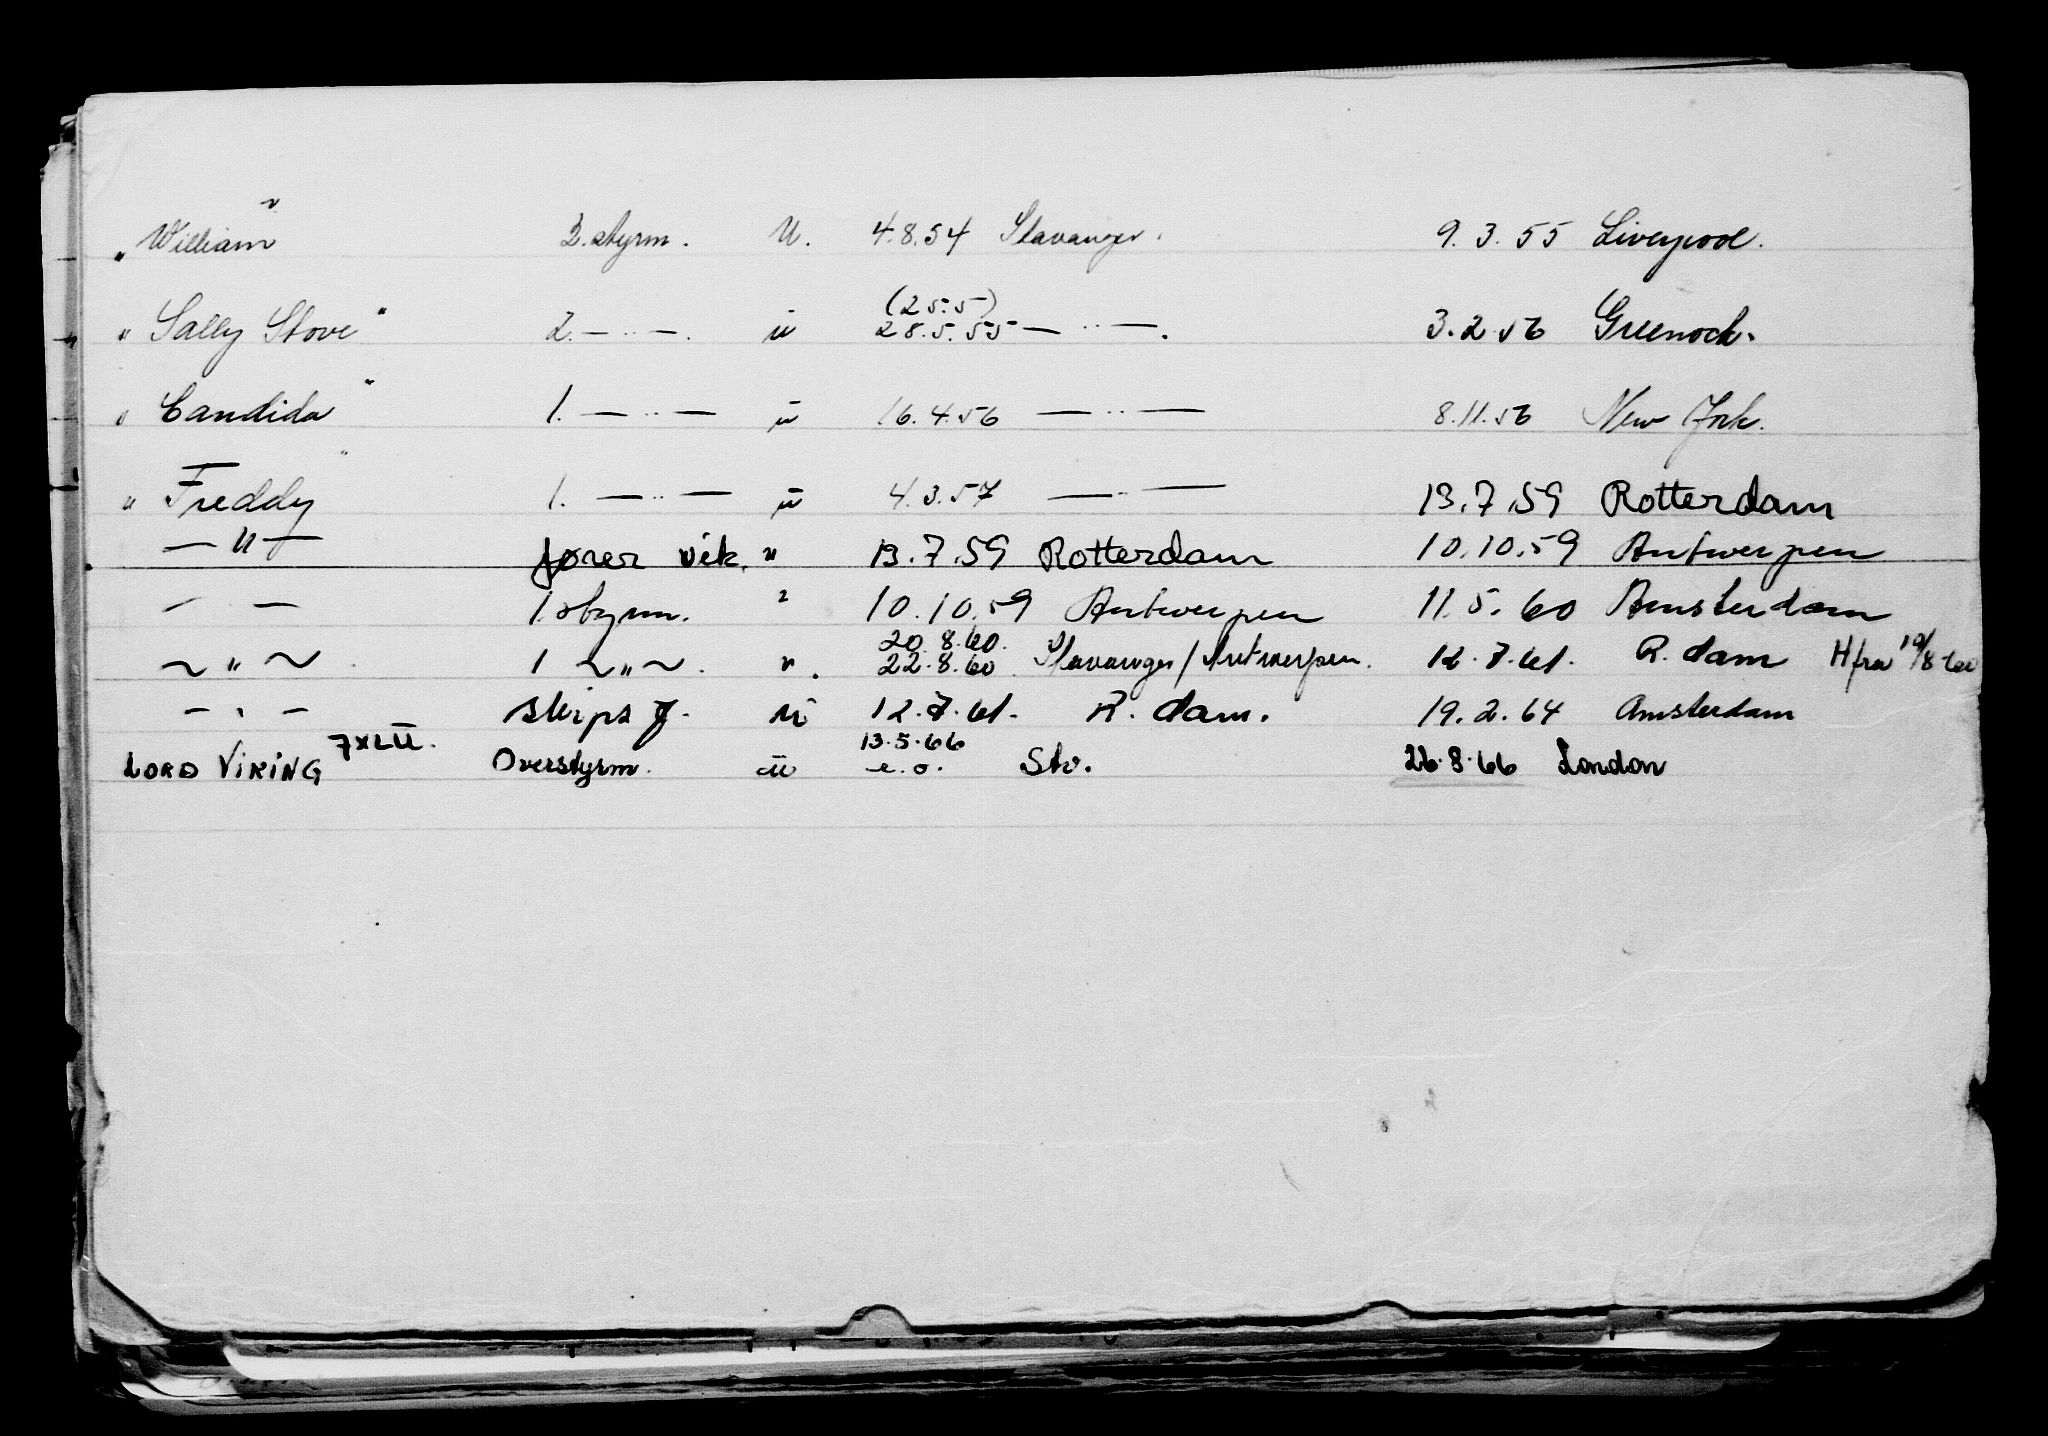 „ William " 3. styrm. U. 4.8.54 Stavanger. 9.3.55 Liverpool.
(25.5)
„ Sally Stove " 2. — " — . u 28.5.55 — " — . 3.2.56 Greenock.
„ Candida " 1. — " — u 16.4.56 — " — 8.11.56 New York.
„ Freddy " 1. — " — u 4.3.57 — " — 13.7.59 Rotterdam
— " — fører vik. " 13.7.59 Rotterdam 10.10.59 Antwerpen
— — 1. styrm. " 10.10.59 Antwerpen 11.5.60 Amsterdam
20.8.60.
~ " ~ 1 ~ " ~ . " . 22.8.60 Stavanger/Antwerpen. 12.7.61. R.dam H fra 19/8-60
— " — skips f. u 12.7.61. R. dam. 19.2.64 Amsterdam
13.5.66
LORD VIKING Overstyrm. u e.o. Stv. 26.8.66 London